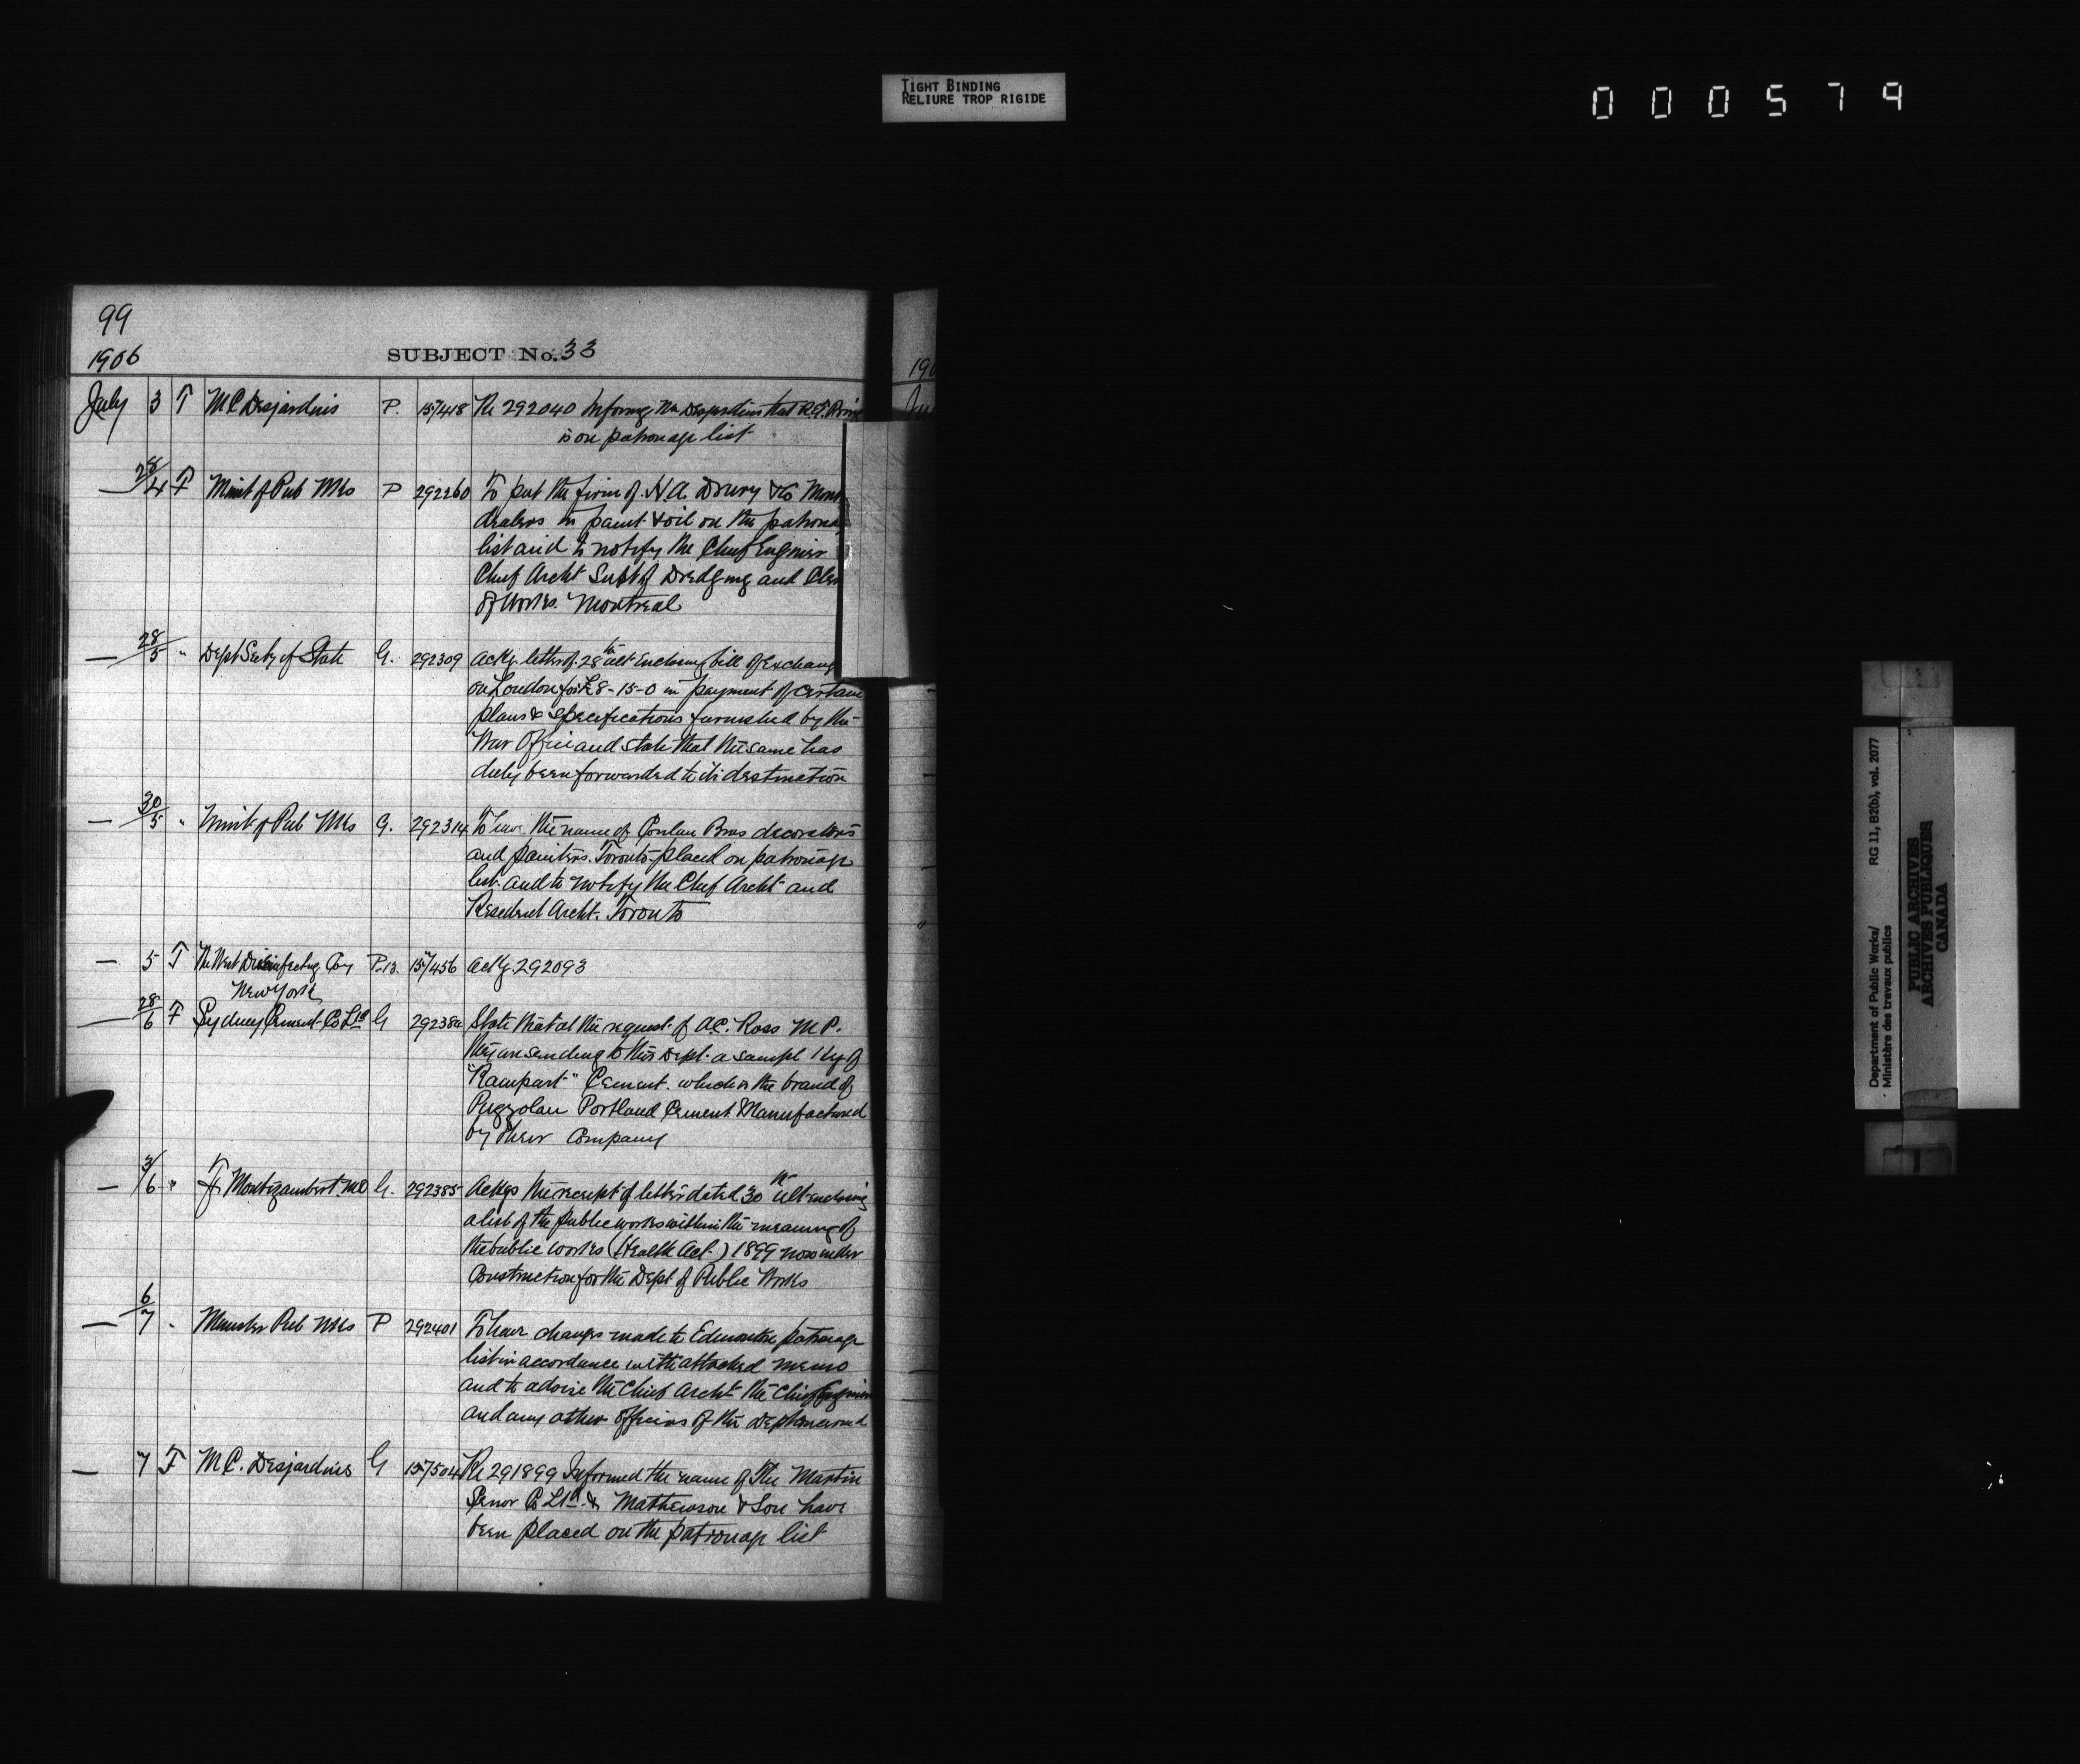 TIGHT BINDING
RELIURE TROP RIGIDE
000579
99
1906
SUBJECT No. 33
July 3 T M C Desjardins P. 157418 Re 292040 Informg Mr Desjardins that R.J.
is on patronage list
— 28/4 F Minst of Pub Wks P 292260 To put the firm of N.A. Drury & Co
dealers in paint & oil on the
list and to notify the Chief Engineer
Chief Archt Supt of Dredging and
of Works. Montreal
— 28/5 " Dept Secty of State G. 292309 Ackg. letter of 28th ult enclosing bill of Exchang
on London for £8-15-0 in payment of certain
plans & specifications furnished by the
War Office and state that the same has
duly been forwarded to its destination
— 30/5 " Minst of Pub Wks G. 292314 To have the name of Conlan Bros decorators
and painters. Toronto placed on patronage
list. and to notify the Chief Archt and
Resident Archt. Toronto
— 5 T The West Disinfecting Coy P.13. 157456 Ackg. 292093
New York
— 28/6 F Sydney Cement Co Ltd G 29238 State that at the request of A.C. Ross M P.
they are sending to this Dept. a sample of
"Rampart" Cement. which is the brand of
Puzzolan Portland Cement Manufactured
by their Company
— 3/6 " F Montizambert. MD G. 292385 Ackgs the receipt of letter dated 30th ult enclosing
a list of the public works within the meaning of
the public works (Health Act.) 1899 now under
Construction for the Dept. of Public Works
— 6/7 " Minister Pub Wks P 292401 To have changes made to Edmonton patronage
list in accordance with attached memo
and to advise the Chief Archt the Chief Engineer
and any other officers of the Dept concerned
— 7 T M C. Desjardins G 157504 Re 291899 Informed the name of The Martin
Senor Co Ltd. & Mathewson & Son have
been placed on the patronage list
190
Department of Public Works/
Ministère des travaux publics
RG 11, B2(b), vol. 2077
PUBLIC ARCHIVES
ARCHIVES PUBLIQUES
CANADA